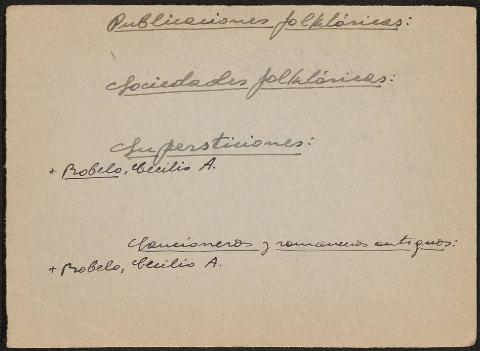 Publicaciones folklóricas:
Sociedades folklóricas:
Supersticiones:
+ Robelo, Cecilio A.
Cancioneros y romanceros antiguos:
+ Robelo, Cecilio A.